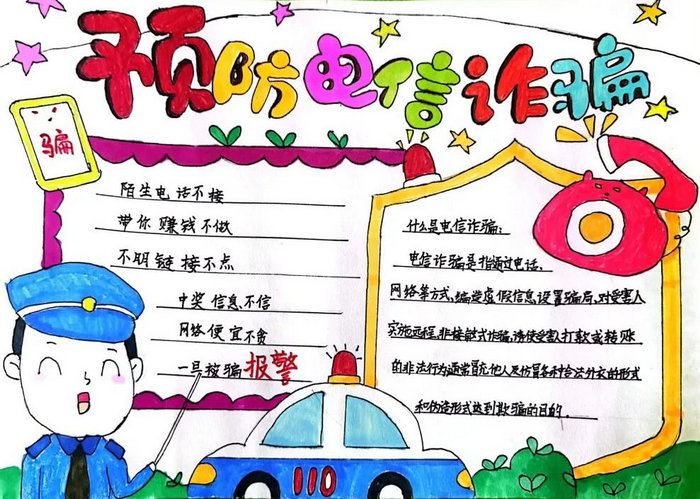 预防电信诈骗
骗
陌生电话不接
带你赚钱不做
不明链接不点
中奖信息不信
网络便宜不贪
一旦被骗报警
什么是电信诈骗:
电信诈骗是指通过电话、
网络等方式,编造虚假信息,设置骗局,对受害人
实施远程、非接触式诈骗,诱使受害人打款或转账
的非法行为通常冒充他人及仿冒各种合法外衣的形式
和伪造形式达到欺骗的目的.
110